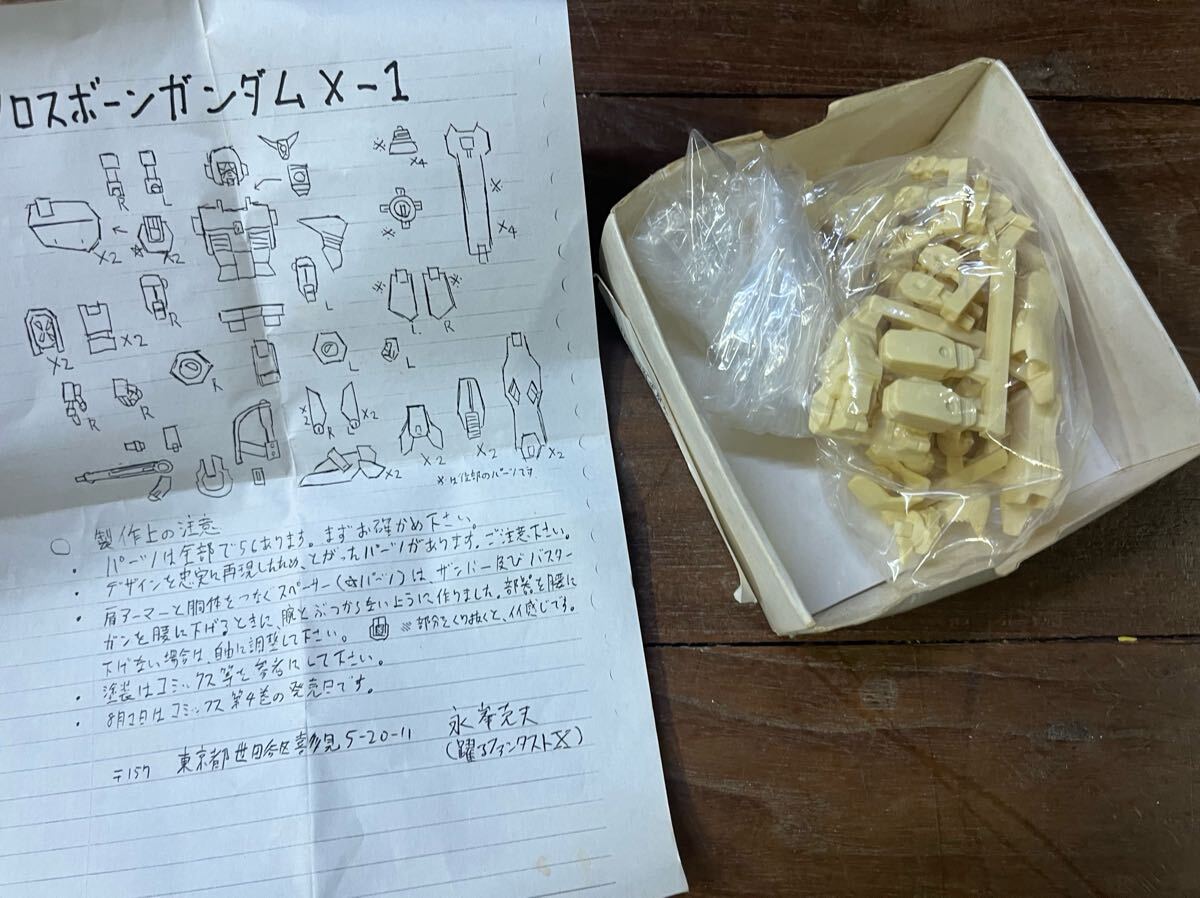 ロスボーンガンダムX-1
R L
X2
X2
※ X4
※
※ X4
L
R
※ ※
L R
X2
X2
R
L
L
R
R
X2 R L X2
X2
X2
X2
X2
※は他部のパーツです
○ 製作上の注意
・パーツは全部で56あります。まずお確かめ下さい。
・デザインを忠実に再現したため、とがったパーツがあります。ご注意下さい。
・肩アーマーと胴体をつなぐスペーサー(☆パーツ)は、ザンバー及びバスター
ガンを腰に下げるときに、腕とぶつからないように作りました。武器を腰に
下げない場合は、自由に調整して下さい。 ※部分をくり抜くと、イイ感じです。
・塗装はコミックス等を参考にして下さい。
・8月2日はコミックス第4巻の発売日です。
〒157 東京都世田谷区喜多見5-20-11
(躍るファンタストX)